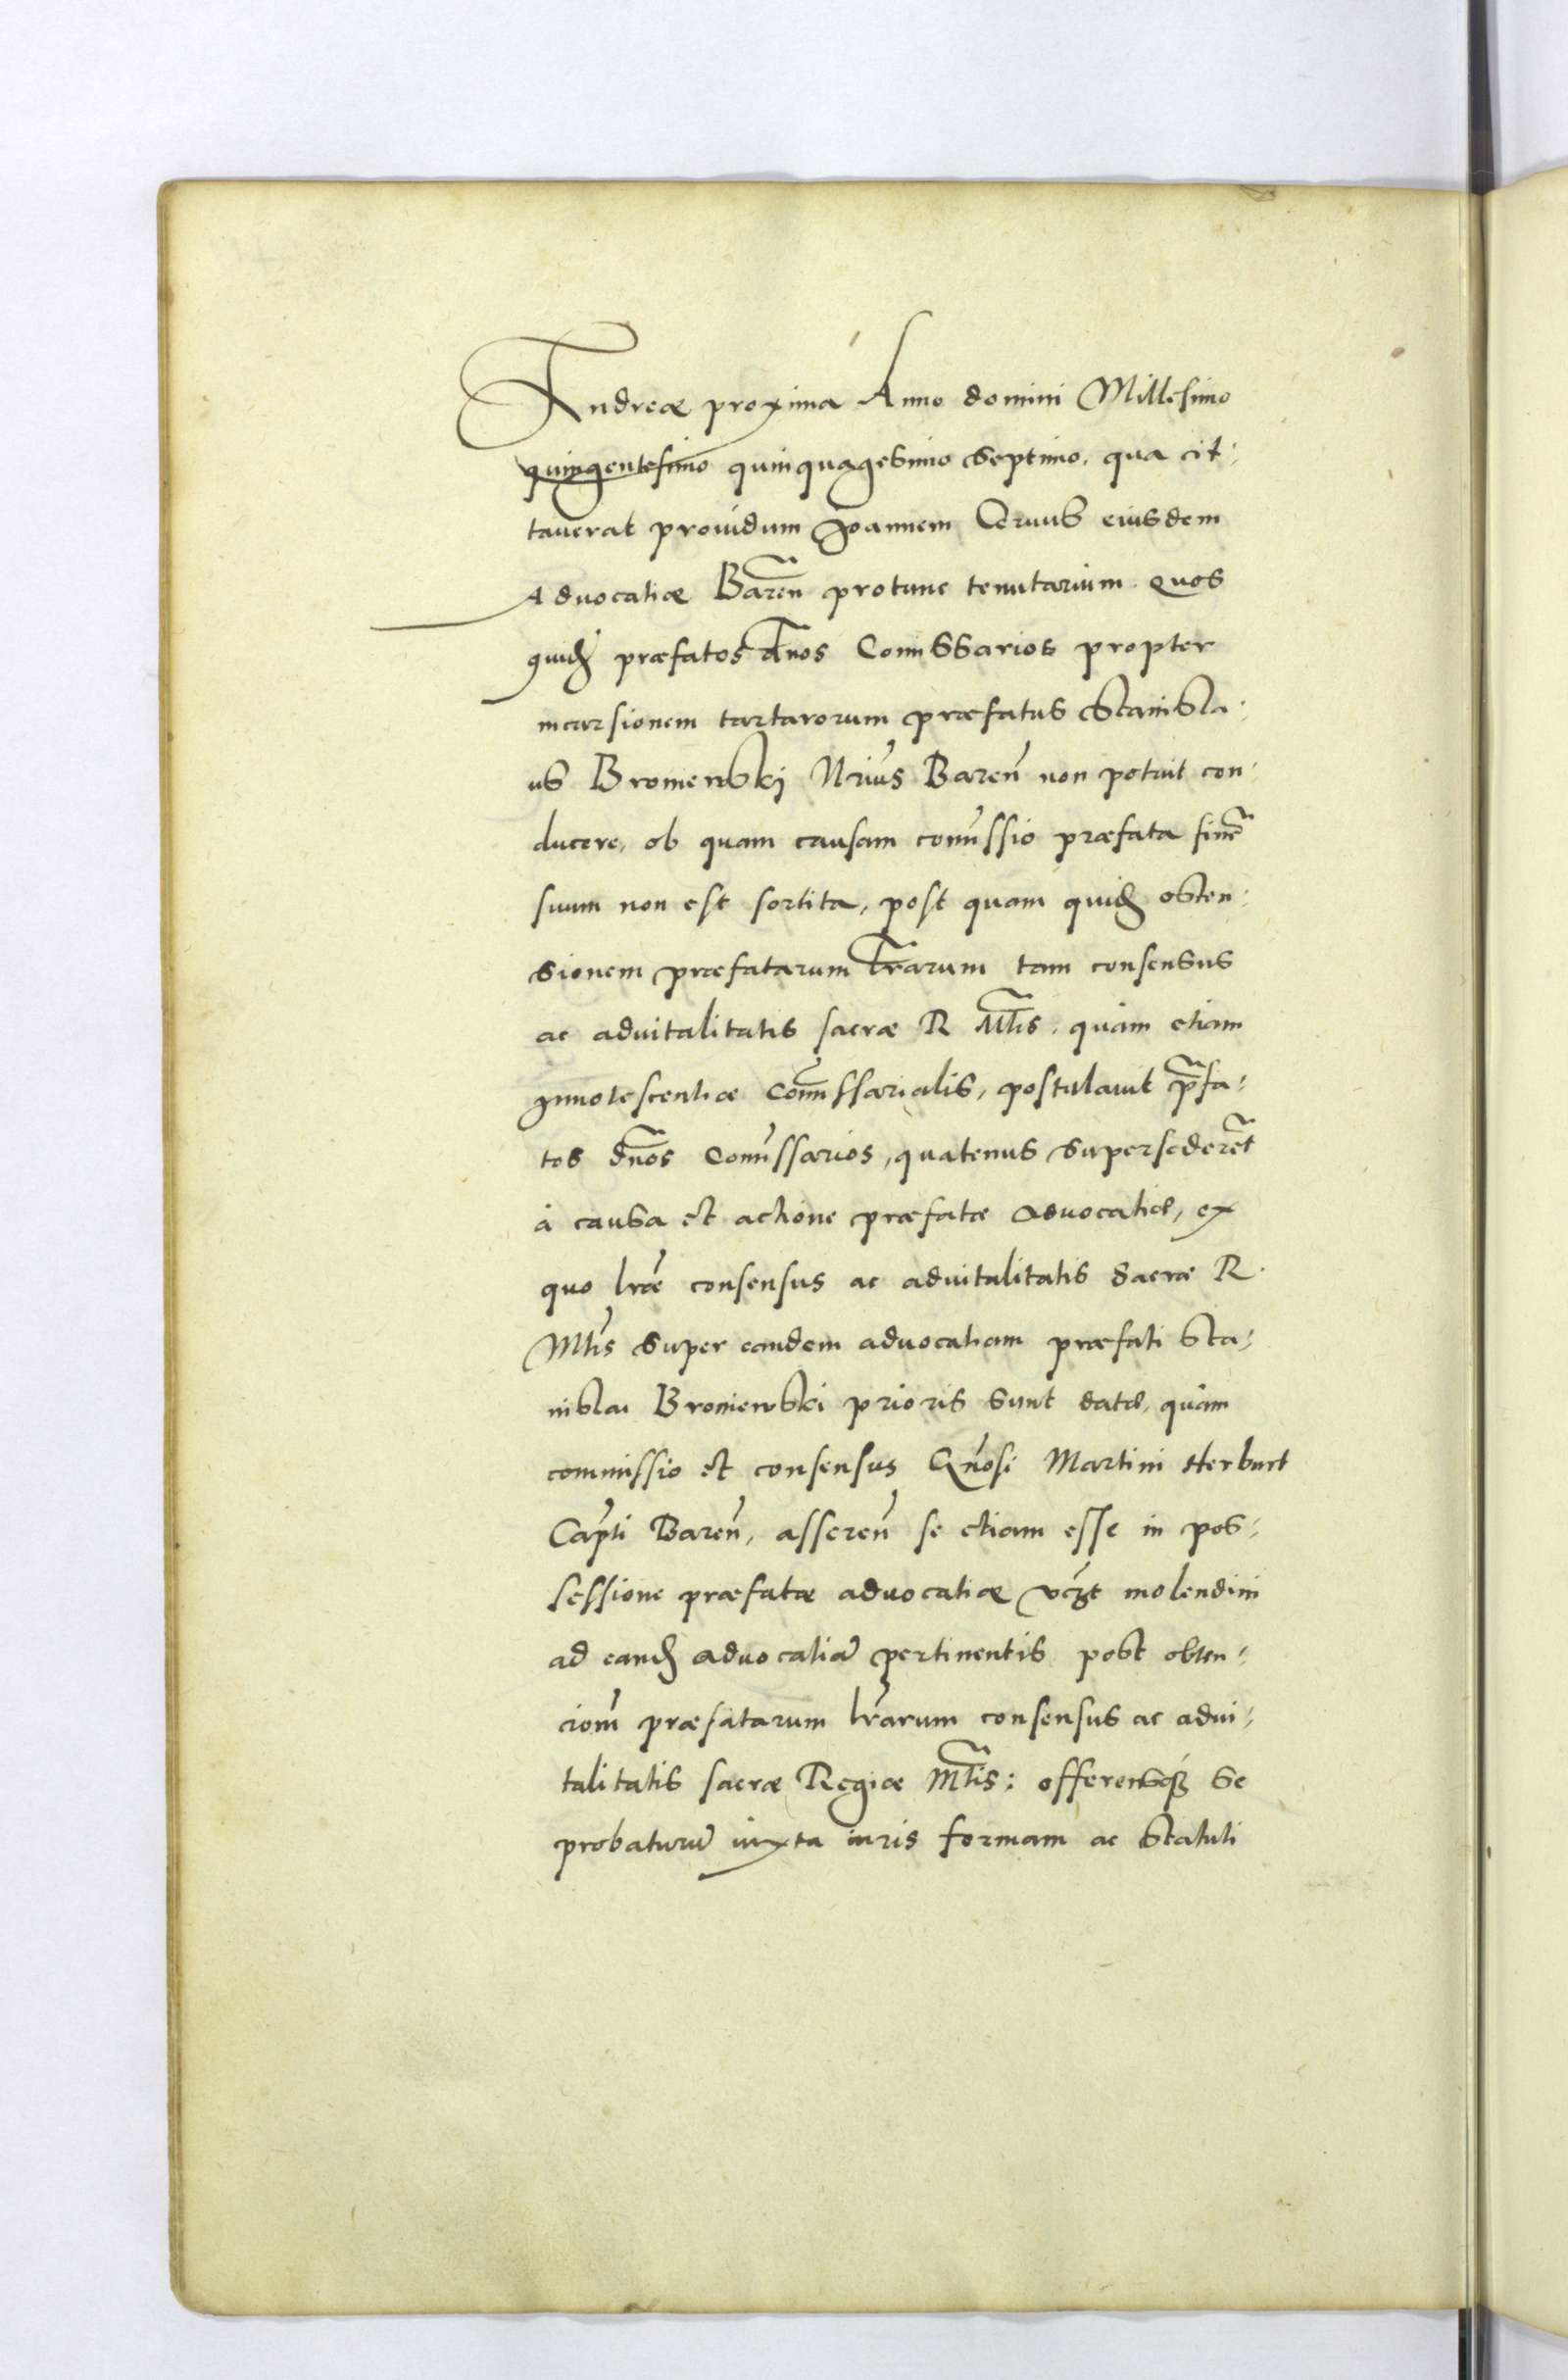 Andreæ proxima Anno domini Millesimo
quingentesimo quinquagesimo septimo. qua cit:
tauerat prouidum Joannem Ceruus eiusdem
Aduocatiæ Baren̄ protunc tenutarium. Quos
quidē præfatos dnos Comissarios propter
incursionem tartarorum præfatus Stanisla:
us Broniewskj Nrius Baren̄ non potuit con:
ducere, ob quam causam comissio præfata finē
suum non est sortita, post quam quidē obten:
sionem præfatarum lrarum tam consensus
ac aduitalitatis sacræ R Mtis. quàm etiam
Innotescentiæ Comissarialis, postulauit p̄fa:
tos dnos Comissarios, quatenus supersederēt
à causa et actione præfatæ Aduocatiæ, ex
quo lræ consensus ac aduitalitatis Sacræ R.
Mtis super eandem aduocatiam præfati Sta:
nislai Broniewski prioris sunt datæ, quàm
commissio et consensus Gnosi Martini Herburt
Capti Baren̄, asseren̄ se etiam esse in pos:
sessione præfatæ aduocatiæ vczt molendini
ad eandē aduocatiā pertinentis post obten:
cionē præfatarum lrarum consensus ac adui:
talitatis sacræ Regiæ Mtis: offerensq́ꝫ se
probaturū iuxta iuris formam ac Statuti